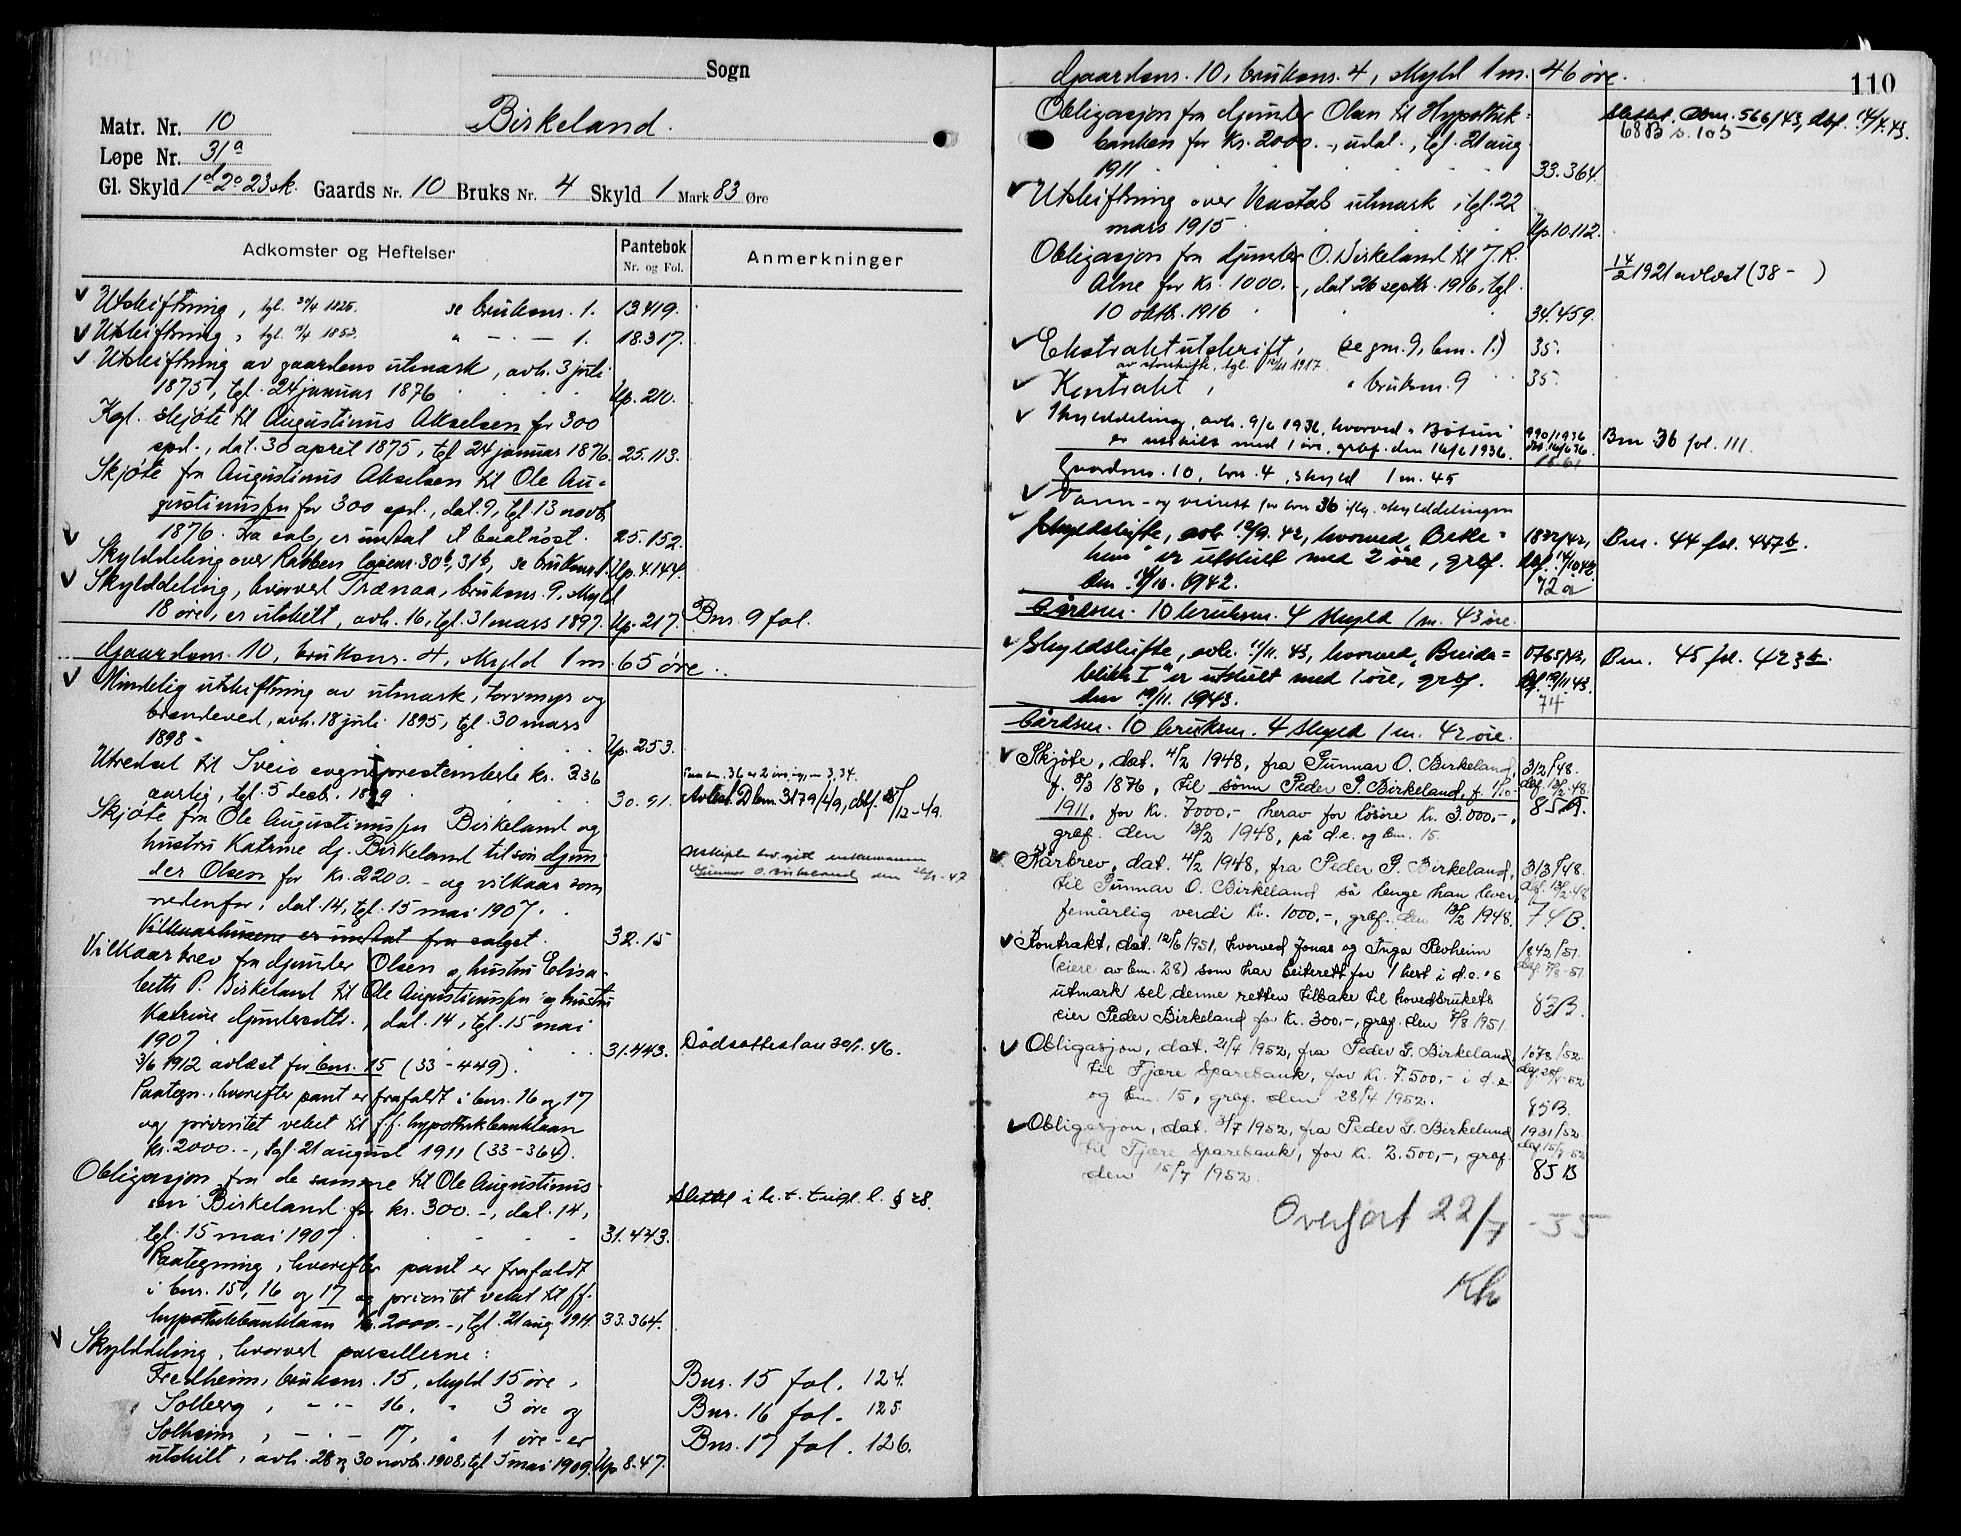 Sogn
Matr. Nr. 10 Birkeland.
Løpe Nr. 31a
Gl. Skyld 1d 2o 23 sk. Gaards Nr. 10 Bruks Nr. 4 Skyld 1 Mark 83 Øre
Adkomster og Heftelser Pantebok Nr. og Fol. Anmerkninger
Utskiftning, tgl. 1825. se bruksnr. 1. 13.419.
Utskiftning, tgl. 1853. " — " — 1. 18.317.
Utskiftning av gaardens utmark, avh. 3 juli
1875, tgl. 24 januar 1876 Up. 210.
Kgl. skjøte til Augustinus Akselsen for 300
spd., dat. 30 april 1875, tgl. 24 januar 1876. 25.113.
Skjøte fra Augustinus Akselsen til Ole Au=
gustinussen for 300 spd., dat. 9, tgl. 13 novbr.
1876. Fra salg er undtat et beialnøst. 25.152.
Skylddeling over Rabben løpenr. 30b, 31b, se bruksnr. 1. Up. 4.144.
Skylddeling, hvorved Trænaa, bruksnr. 9, skyld
18 øre, er utskilt, avh. 16, tgl. 31 mars 1897. Up. 217. Bnr. 9 fol.
Gaardsnr. 10, bruksnr. 4, skyld 1 m. 65 øre.
Mindelig utskiftning av utmark, torvmyr og
brendeved, avh. 18 juli 1895, tgl. 30 mars
1898 - Up. 253.
Utredsel til Sveio sogneprestembede kr. 3.36
aarlig, tgl. 5 decb. 1899 30.91. Avløst. Dbnr. 3179/49, dbf. 28/12-49.
Skjøte fra Ole Augustinussen Birkeland og
hustru Katrine dj. Birkeland til søn Gjun-
der Olsen for kr. 2200.- og vilkaar som
nedenfor, dat. 14, tgl. 15 mai 1907.
Vilkaarhusene er undtat fra salget. 32.15
Vilkaarbrev fra Gjunder Olsen og hustru Elisa-
beth P. Birkeland til Ole Augustinussen og hustru
Katrine Gjundersdtr., dat. 14, tgl. 15 mai
1907 31.443. Dødsattest av 30/1.46.
3/6 1912 avløst for bnr. 15 (33-449).
Paategn., hvorefter pant er frafaldt i bnr. 16 og 17
og prioritet veket til ff. hypothekbanklaan
kr. 2000.-, tgl. 21 august 1911 (33-364).
Obligasjon fra de samme til Ole Augustinus-
sen Birkeland for kr. 300.-, dat. 14,
tgl. 15 mai 1907 31.443. Slettet i h. t. tingl. l. § 28.
Paategning, hvorefter pant er frafaldt
i bnr. 15, 16 og 17 og prioritet veket til ff.
hypothekbanklaan kr. 2000.-, tgl. 21 aug. 1911. 33.364.
Skylddeling, hvorved parsellerne:
Fredheim, bruksnr. 15, skyld 15 øre, Bnr. 15 fol. 124.
Solberg, — " — 16, " 3 øre og Bnr. 16 fol. 125.
Solheim, — " — 17, " 1 øre - er Bnr. 17 fol. 126.
utskilt, avh. 28 og 30 novbr. 1908, tgl. 5 mai 1909. Up 8.47.
110
Gaardsnr. 10, bruksnr. 4, skyld 1 m. 46 øre.
Obligasjon fra Gjunder Olsen til Hypothek= Slettet. Dbnr. 566/43, dbf. 14/4.43.
banken for kr. 2000.-, udat., tgl. 21 aug. 68B s. 103
1911 33.364.
Utskiftning over Vestab utmark, tgl. 22
mars 1915 Up 10.112.
Obligasjon fra Gjunder O. Birkeland til J. R.
Alne for kr. 1000.-, dat. 26 septbr. 1916, tgl. 14/2 1921 avløst (38- )
10 oktbr. 1916 34.459.
Ekstraktutskrift, (se gnr. 9, bnr. 1.) 35.
av storskifte, tgl. 1917.
Kontrakt, " bruksnr. 9 35.
Skylddeling, avh. 9/6 1936, hvorved "Bøtun" 990/1936 Bnr 36 fol. 111.
er utskilt med 1 øre, grbf. den 16/6 1936. dbf. 16/6 36.
Gaardsnr. 10, bnr. 4, skyld 1 m. 45
Vann- og veirett for bnr 36 iflg. skylddelingen
Skyldskifte, avh. 12/9. 42, hvorved "Betle= 1822/42, Bnr. 44 fol. 447b.
hem" er utskilt med 2 øre, grbf. dbf. 14/10.42.
den 14/10. 1942. 72a
Gårdsnr. 10 bruksnr. 4 skyld 1 m. 43 øre.
Skyldskifte, avh. 11/11. 43, hvorved "Breida= Bnr. 45 fol. 423b.
blikk I" er utskilt med 1 øre, grbf. dbf. 19/11.43.
den 19/11. 1943. 74
Gårdsnr. 10 bruksnr. 4 skyld 1 m. 42 øre.
Skjøte, dat. 4/2 1948, fra Gunnar O. Birkeland, 312/48.
f. 9/3 1876, til sønn Peder G. Birkeland, f. dbf. 13/2-48.
1911, for kr. 7000.-, herav for løsøre kr. 3.000.-,
grbf. den 13/2 1948, på d.e. og bnr. 15.
Kårbrev, dat. 4/2 1948, fra Peder G. Birkeland, 313/48.
til Gunnar O. Birkeland så lenge han lever, dbf. 13/2-48
femårlig verdi kr. 1000.-, grbf. den 13/2 1948. 74B.
Kontrakt, dat. 12/6 1951, hvorved Jonas og Inga Revheim 1842/51.
(eiere av bnr. 28) som har beiterett for 1 hest i d.e.'s dbf. 7/8-51
utmark sel denne retten tilbake til hovedbrukets
eier Peder Birkeland for kr. 300.-, grbf. den 7/8 1951. 83B.
Obligasjon, dat. 21/4 1952, fra Peder G. Birkeland, 1078/52.
til Fjære Sparebank, for kr. 7.500.- i d.e.
og bnr. 15, grbf. den 28/4 1952. 85B.
Obligasjon, dat. 3/7 1952, fra Peder G. Birkeland 1931/52
til Fjære Sparebank, for kr. 2.500.-, grbf. dbf. 15/7-52
den 15/7 1952. 85B
Overført 22/7 - 55
Kh